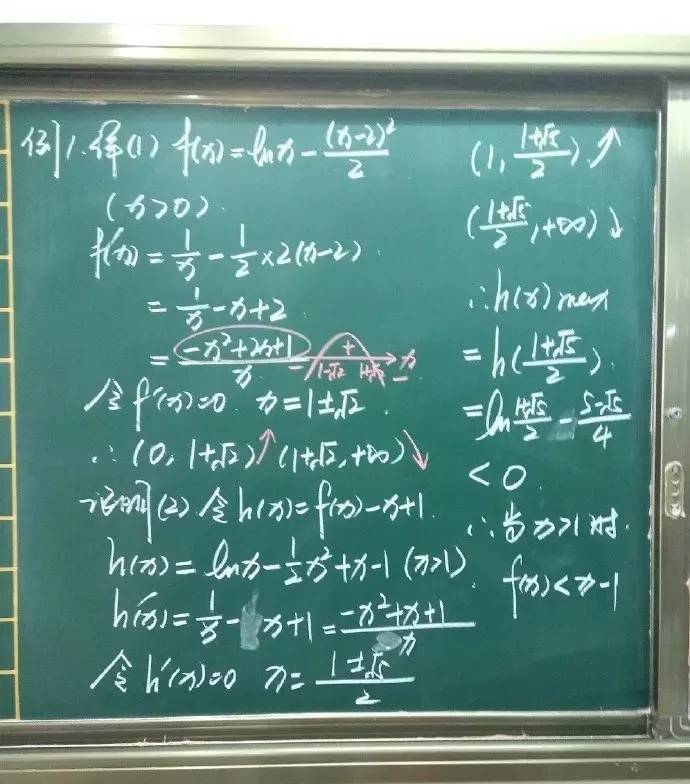 例1.解(1) f(x)=lnx-(x-2)²/2
(x>0).
f'(x)=1/x-1/2×2(x-2).
=1/x-x+2
=(-x²+2x+1)/x
- 1-√2 + 1+√2 - x
令f'(x)=0 x=1±√2.
∴(0,1+√2)↑(1+√2,+∞)↓
证明(2)令h(x)=f(x)-x+1.
h(x)=lnx-1/2x²+x-1(x>1)
h'(x)=1/x-x+1=(-x²+x+1)/x
令h'(x)=0 x=(1±√5)/2
(1,(1+√5)/2)↑
((1+√5)/2,+∞)↓
∴h(x)max
=h((1+√5)/2).
=ln(1+√5)/2-(5-√5)/4
<0.
∴当x>1时.
f(x)<x-1